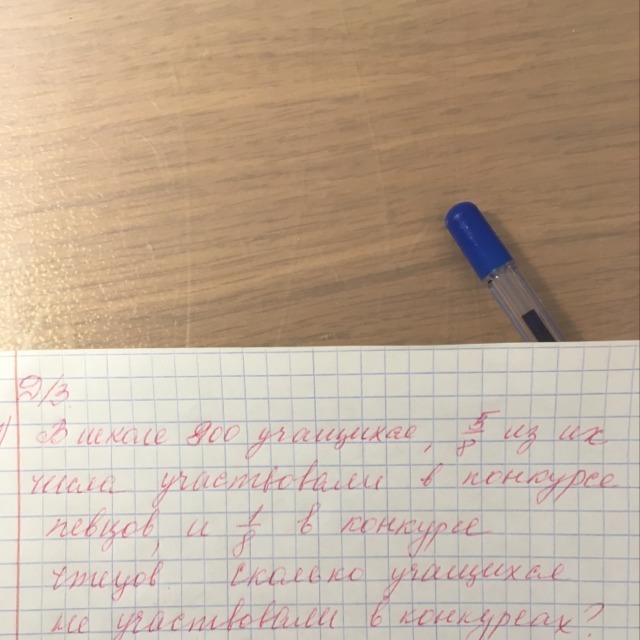 Д/З
1) В школе 800 учащихся, 5/8 из их
числа участвовали в конкурсе
певцов, и 1/8 в конкурсе
чтецов. Сколько учащихся
не участвовали в конкурсах?